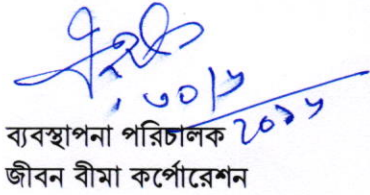 ৩০/৬
ব্যবস্থাপনা পরিচালক
জীবন বীমা কর্পোরেশন